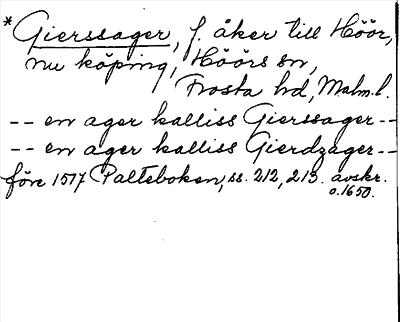 * Gierssager, f. åker till Höör,
nu köping, Höörs sn,
Frosta hd, Malm.l.
-- en ager kalliss Gierssager --
-- en ager kalliss Gierdzager --
före 1517 Palteboken, ss. 212, 213. avskr.
o.1650.